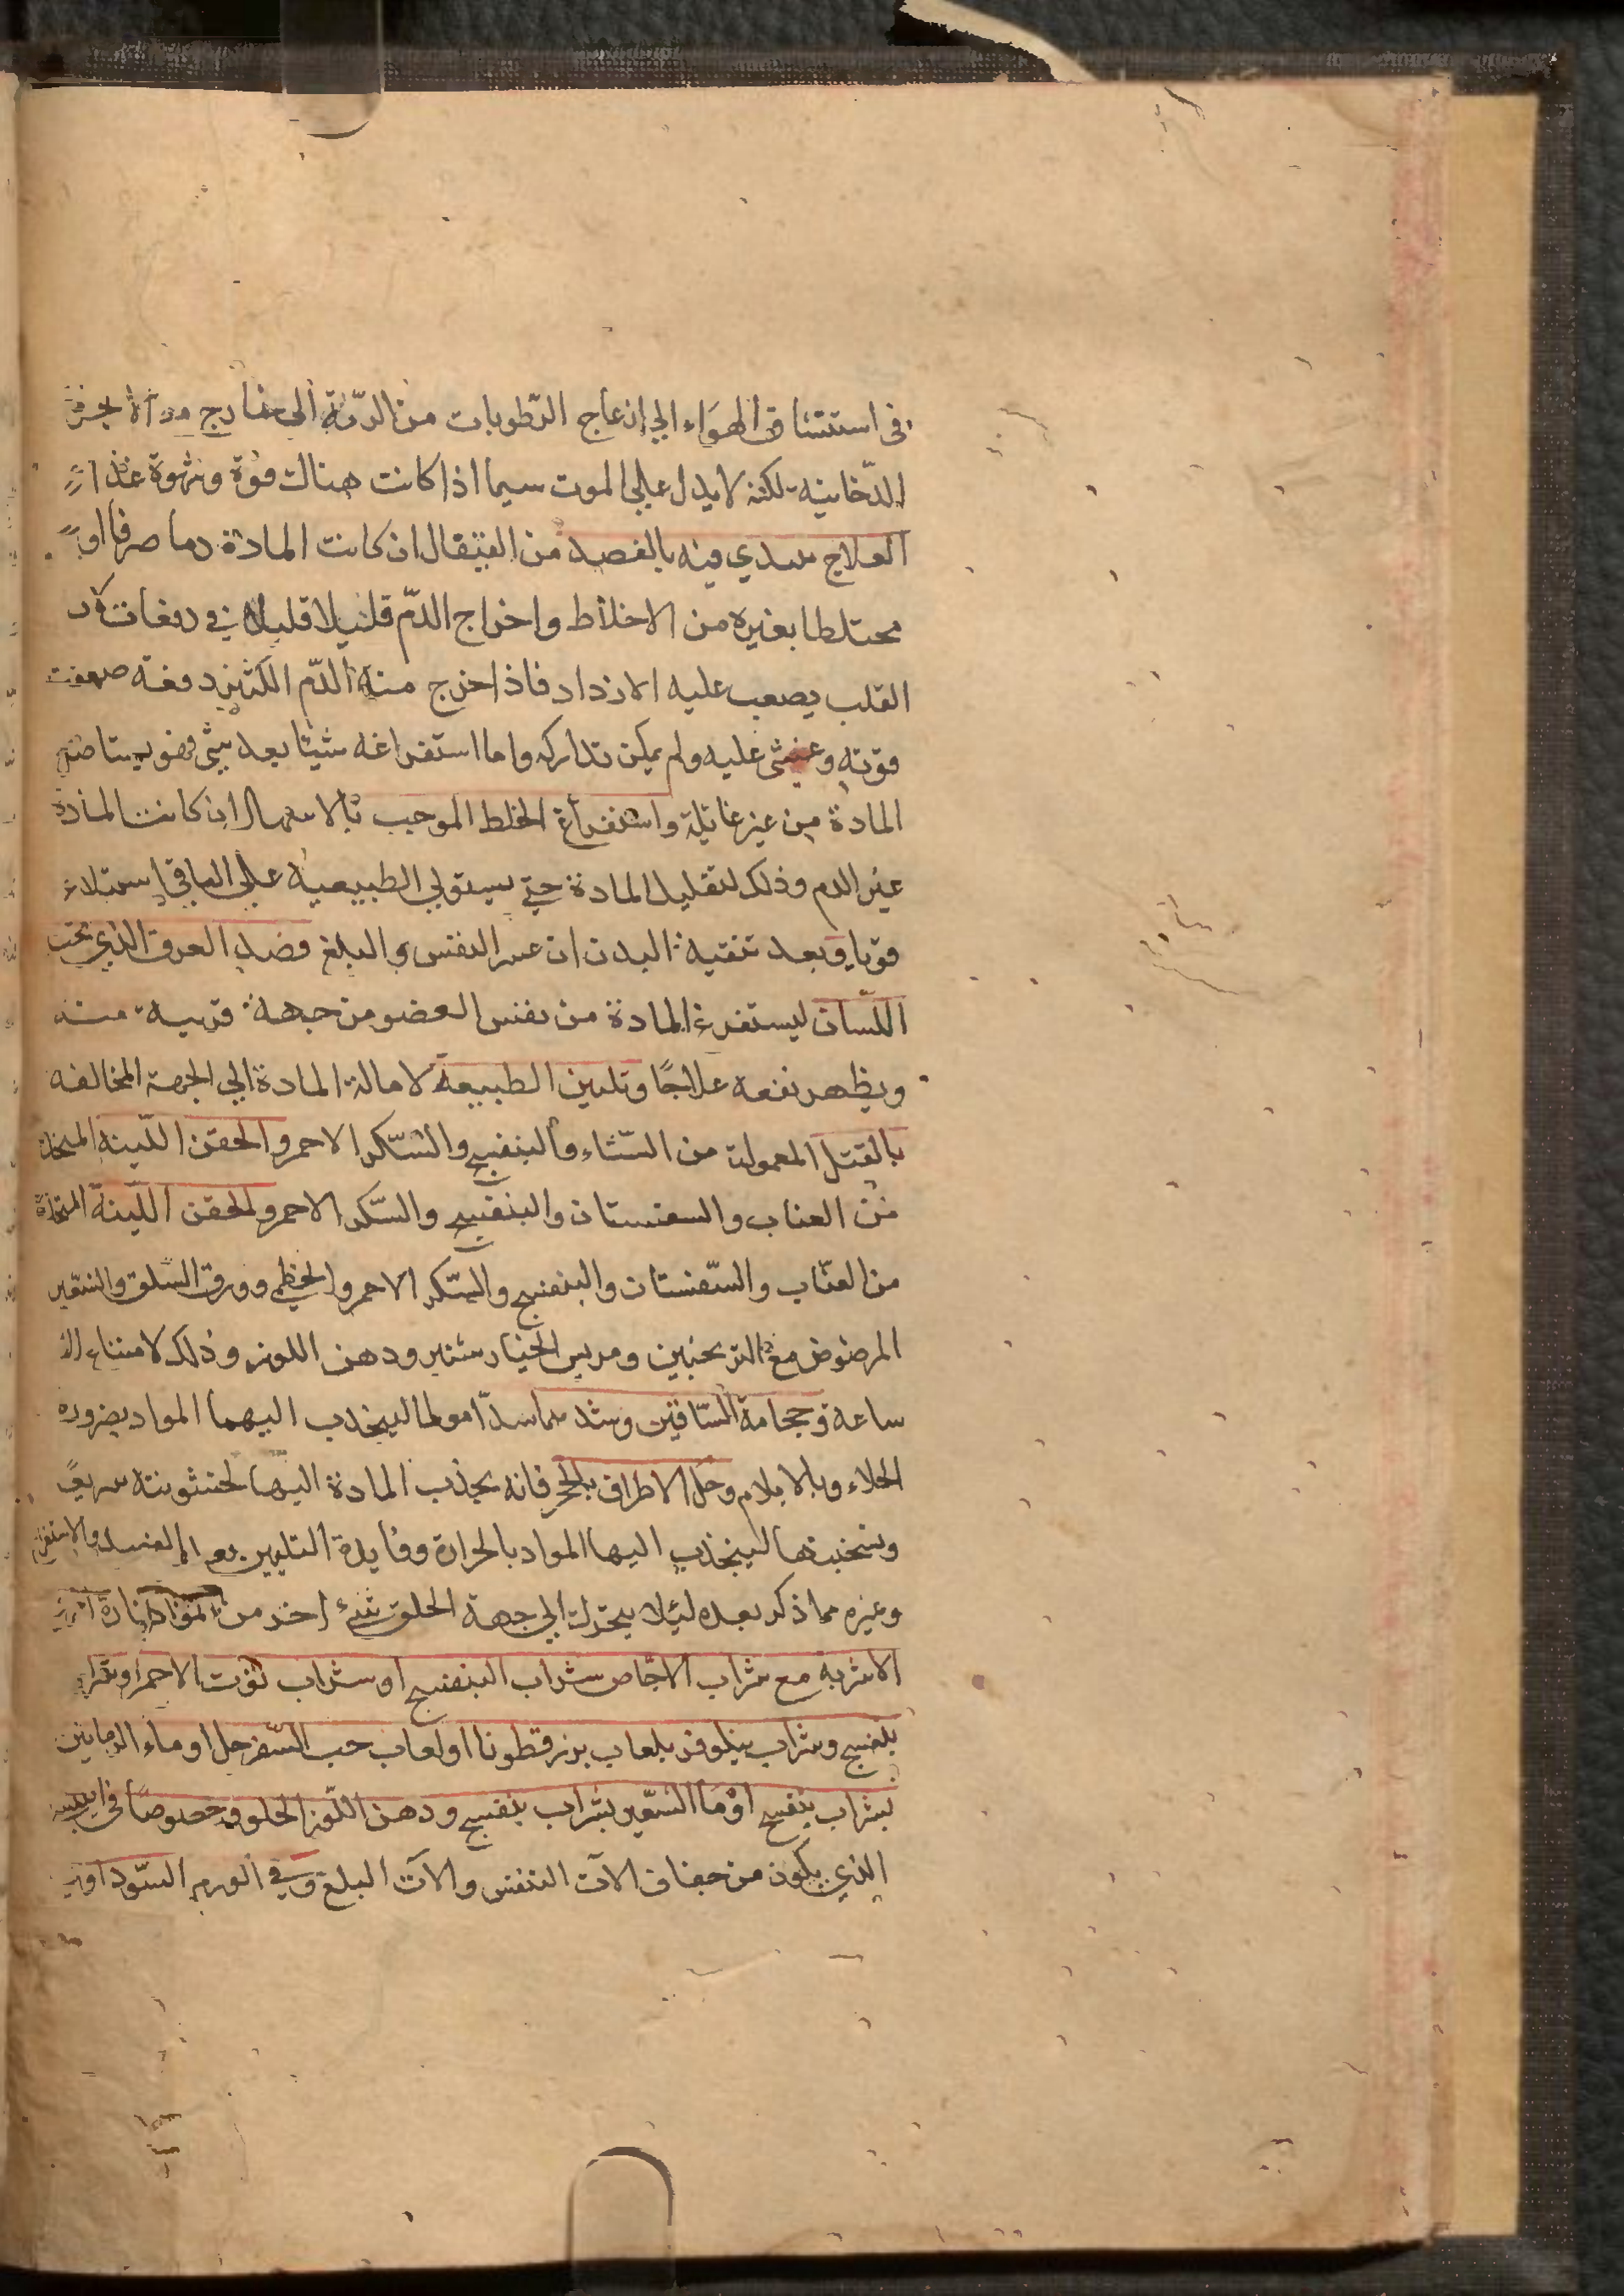 في استنشاق الهواء الي ازعاج الرّطوبات من الريّة الي خارج
الدّخانية لكنه لا يدل علي الموت سيما اذا كانت هناك قوة وشهوة غذاء
العلاج يبتدي فيه بالفصد من القيفال ان كانت المادة دما صرفا او
مختلطا بغيره من الاخلاط واخراج الدّم قليلا قليلا في دفعات
القلب يصعب عليه الازداد فاذا خرج منه الدّم الكثير دفعة ضعفت
قوته وغشي عليه ولم يمكن تداركه واما استفراغه شيئا بعد شئ فهو
المادة من غير غائلة واستفراغ الخلط الموجب بالاسهال ان كانت المادة
غير الدم وذلك لتقليل المادة حتي يستولي الطبيعية علي الباقي استيلاء
قويا وبعد تنقية البدن ان عسر النفس والبلع فصد العرق الذي تحت
اللّسان ليستفرغ المادة من نفس العضو من جهة قريبة منه
ويظهر نفعه علاجًا وتليين الطبيعة لامالة المادة الي الجهة المخالفه
بالفتل المعمولة من السّناء والبنفسج والسّكر الاحمر والحقن اللّينة المتخذة
من العناب والسفستان والبنفسج والسّكر الاحمر والحقن اللّينة المتخذة
من العنّاب والسّفستان والبنفسج والسّكر الاحمر والخطمي وورق السلق والشعير
المرضوض مع الترنجبين ومريس الخيار شنبر ودهن اللوز وذلك لامتناع
ساعة وحجامة السّاقين وشد مولما لينجذب اليهما المواد بضرورة
الخلاء وبالايلام وحل الاطراف بالحجر فانه يجذب المادة اليها لخشونته
وتسخينها لينجذب اليها المواد بالحرارة وفايدة التليين بعد الفصد والاستفراغ
وغيره مما ذكر بعده لئلا يتحرك الي جهة الحلق شئ اخر من
الاشربة مع شراب الاجّاص شراب البنفسج او شراب توت الاحمر او
بنفسج وشراب نيلوفر بلعاب بزرقطونا او لعاب حب السّفرجل او ماء الرمانين
بشراب بنفسج او ماء الشّعير بشراب بنفسج ودهن اللّوز الحلو وخصوصا في
الذي يكون من جفاف الات التنفس والات البلع وفي الورم السّوداوي